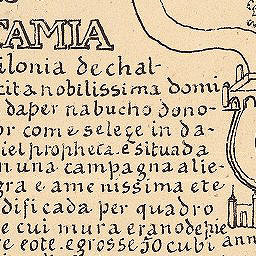 TAMIA
ilonia de chal-
cita nobilissima domi
daper nabucho dono-
or come selege in da-
iel propheta. e situada
n una campagna alie-
gra e amenissima e te
dificada per quadro
e cui mura erano de pie
re cote. e grosse 50 cubi
ann